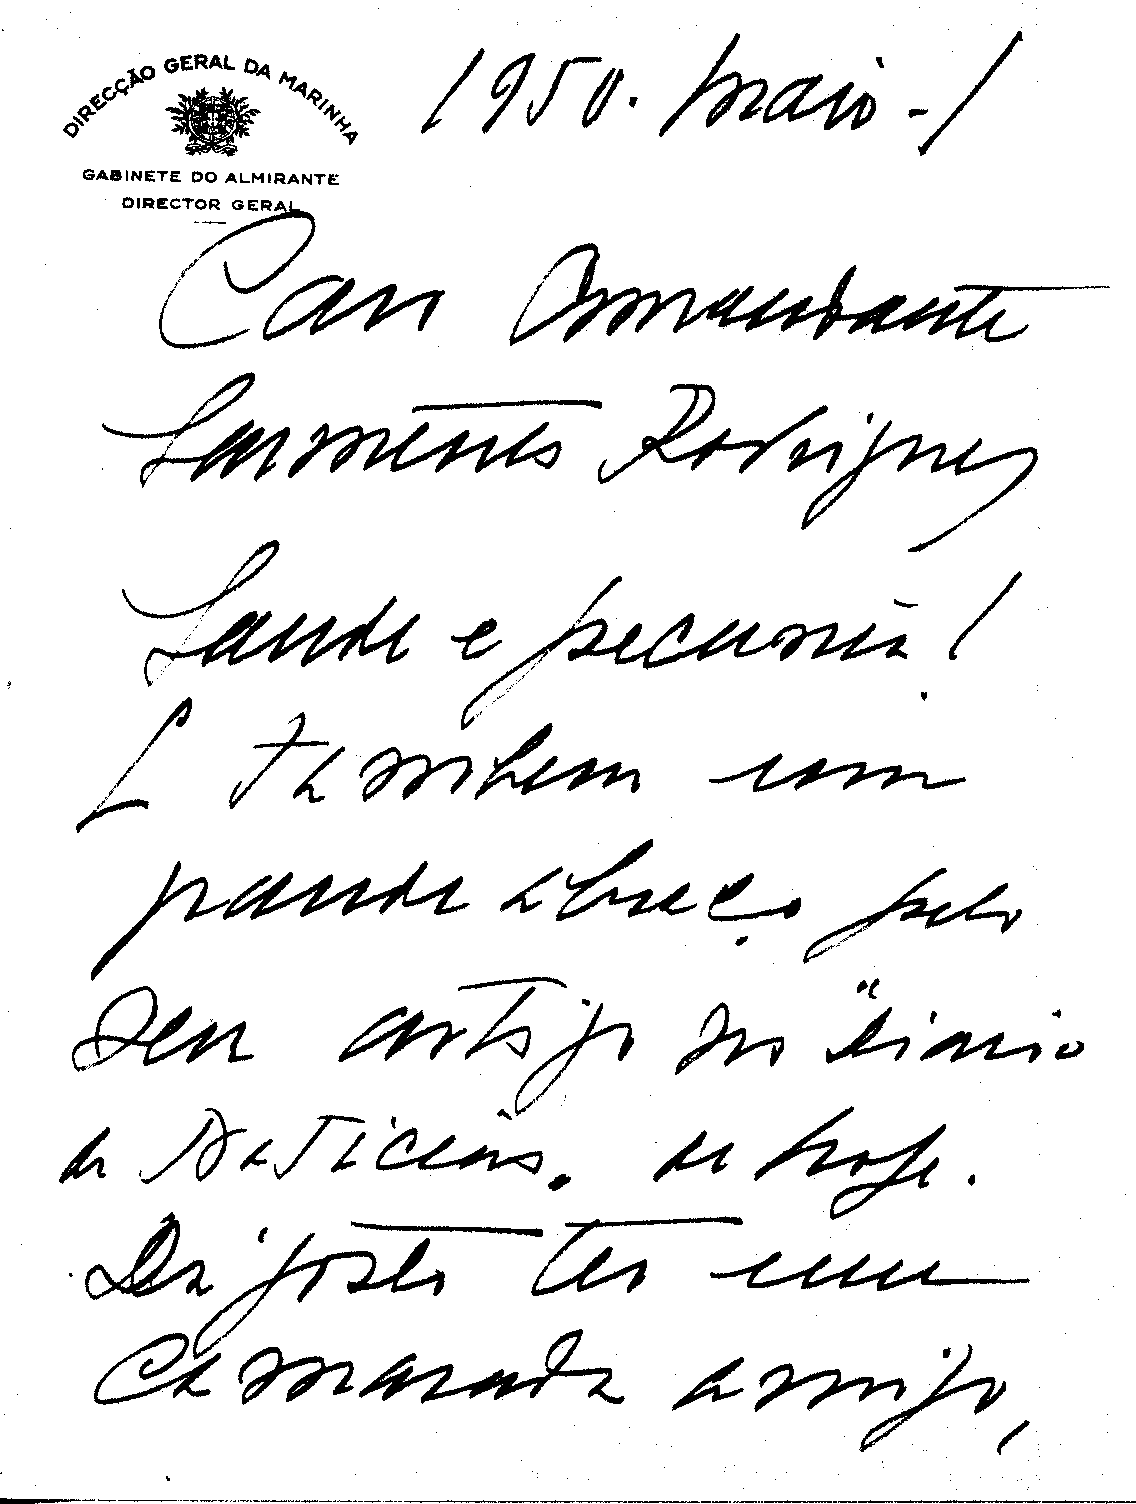 DIRECÇÃO GERAL DA MARINHA
GABINETE DO ALMIRANTE
DIRECTOR GERAL
1950. Maio - 1
Caro Comandante
Sarmento Rodrigues
Saude e pecunia!
E tambem um
grande abraço pelo
seu artigo no "Diario
de Noticias" de hoje.
Dá gosto ler um
Camarada amigo,